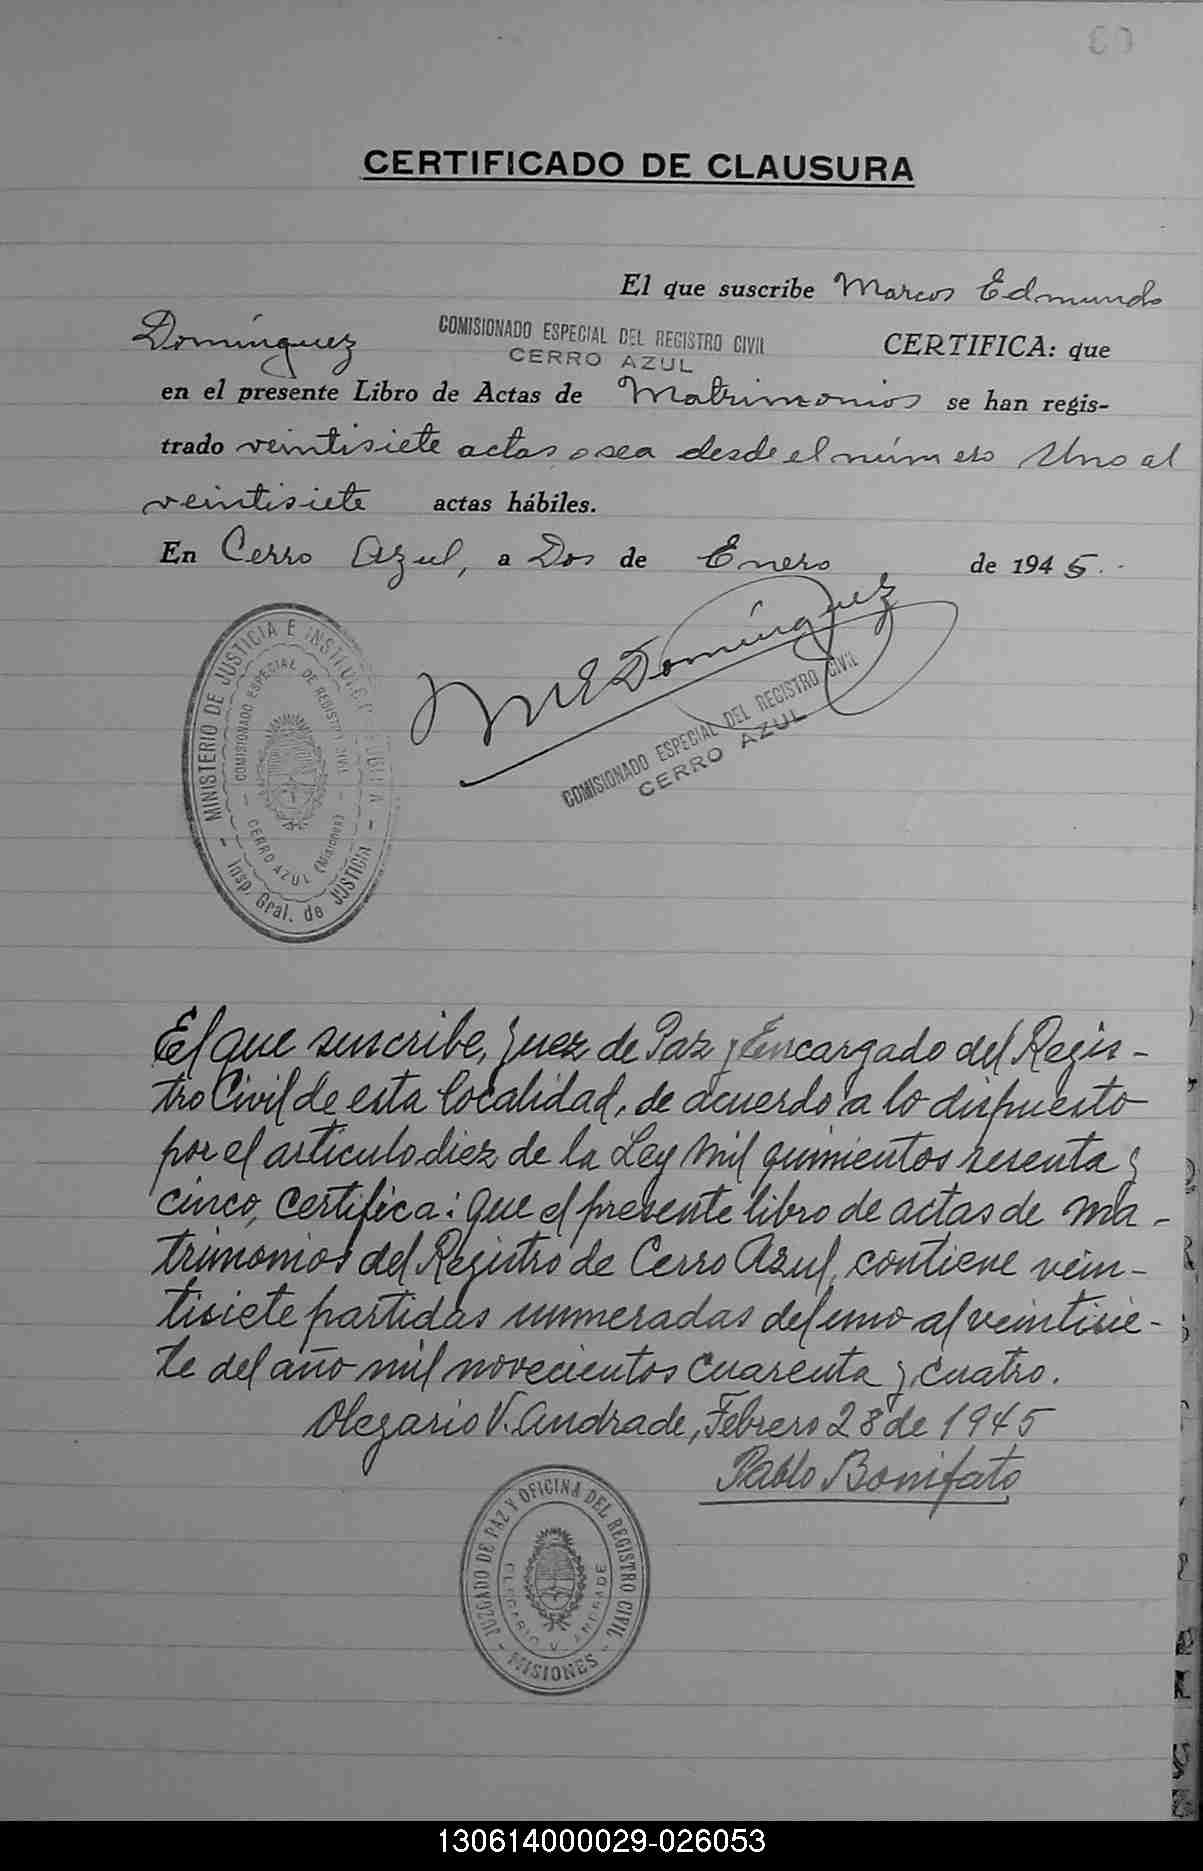 CERTIFICADO DE CLAUSURA
El que suscribe Marcos Edmundo
Domínguez COMISIONADO ESPECIAL DEL REGISTRO CIVIL CERTIFICA: que
CERRO AZUL
en el presente Libro de Actas de Matrimonios se han regis-
trado veintisiete actas, o sea desde el número Uno al
veintisiete actas hábiles.
En Cerro Azul, a Dos de Enero de 1945.-
M E Domínguez
COMISIONADO ESPECIAL DEL REGISTRO CIVIL
CERRO AZUL
MINISTERIO DE JUSTICIA E INSTRUCC. PUBLICA
COMISIONADO ESPECIAL DE REGISTRO CIVIL
CERRO AZUL (Misiones)
Insp. Gral. de JUSTICIA
El que suscribe, Juez de Paz y Encargado del Regis-
tro Civil de esta localidad, de acuerdo a lo dispuesto
por el artículo diez de la Ley mil quinientos sesenta y
cinco, certifica: que el presente libro de actas de ma-
trimonios del Registro de Cerro Azul, contiene vein-
tisiete partidas numeradas del uno al veintisie-
te del año mil novecientos cuarenta y cuatro.
Olegario V. Andrade, Febrero 28 de 1945
Pablo Bonifato
JUZGADO DE PAZ Y OFICINA DEL REGISTRO CIVIL
OLEGARIO V. ANDRADE
- MISIONES -
130614000029-026053